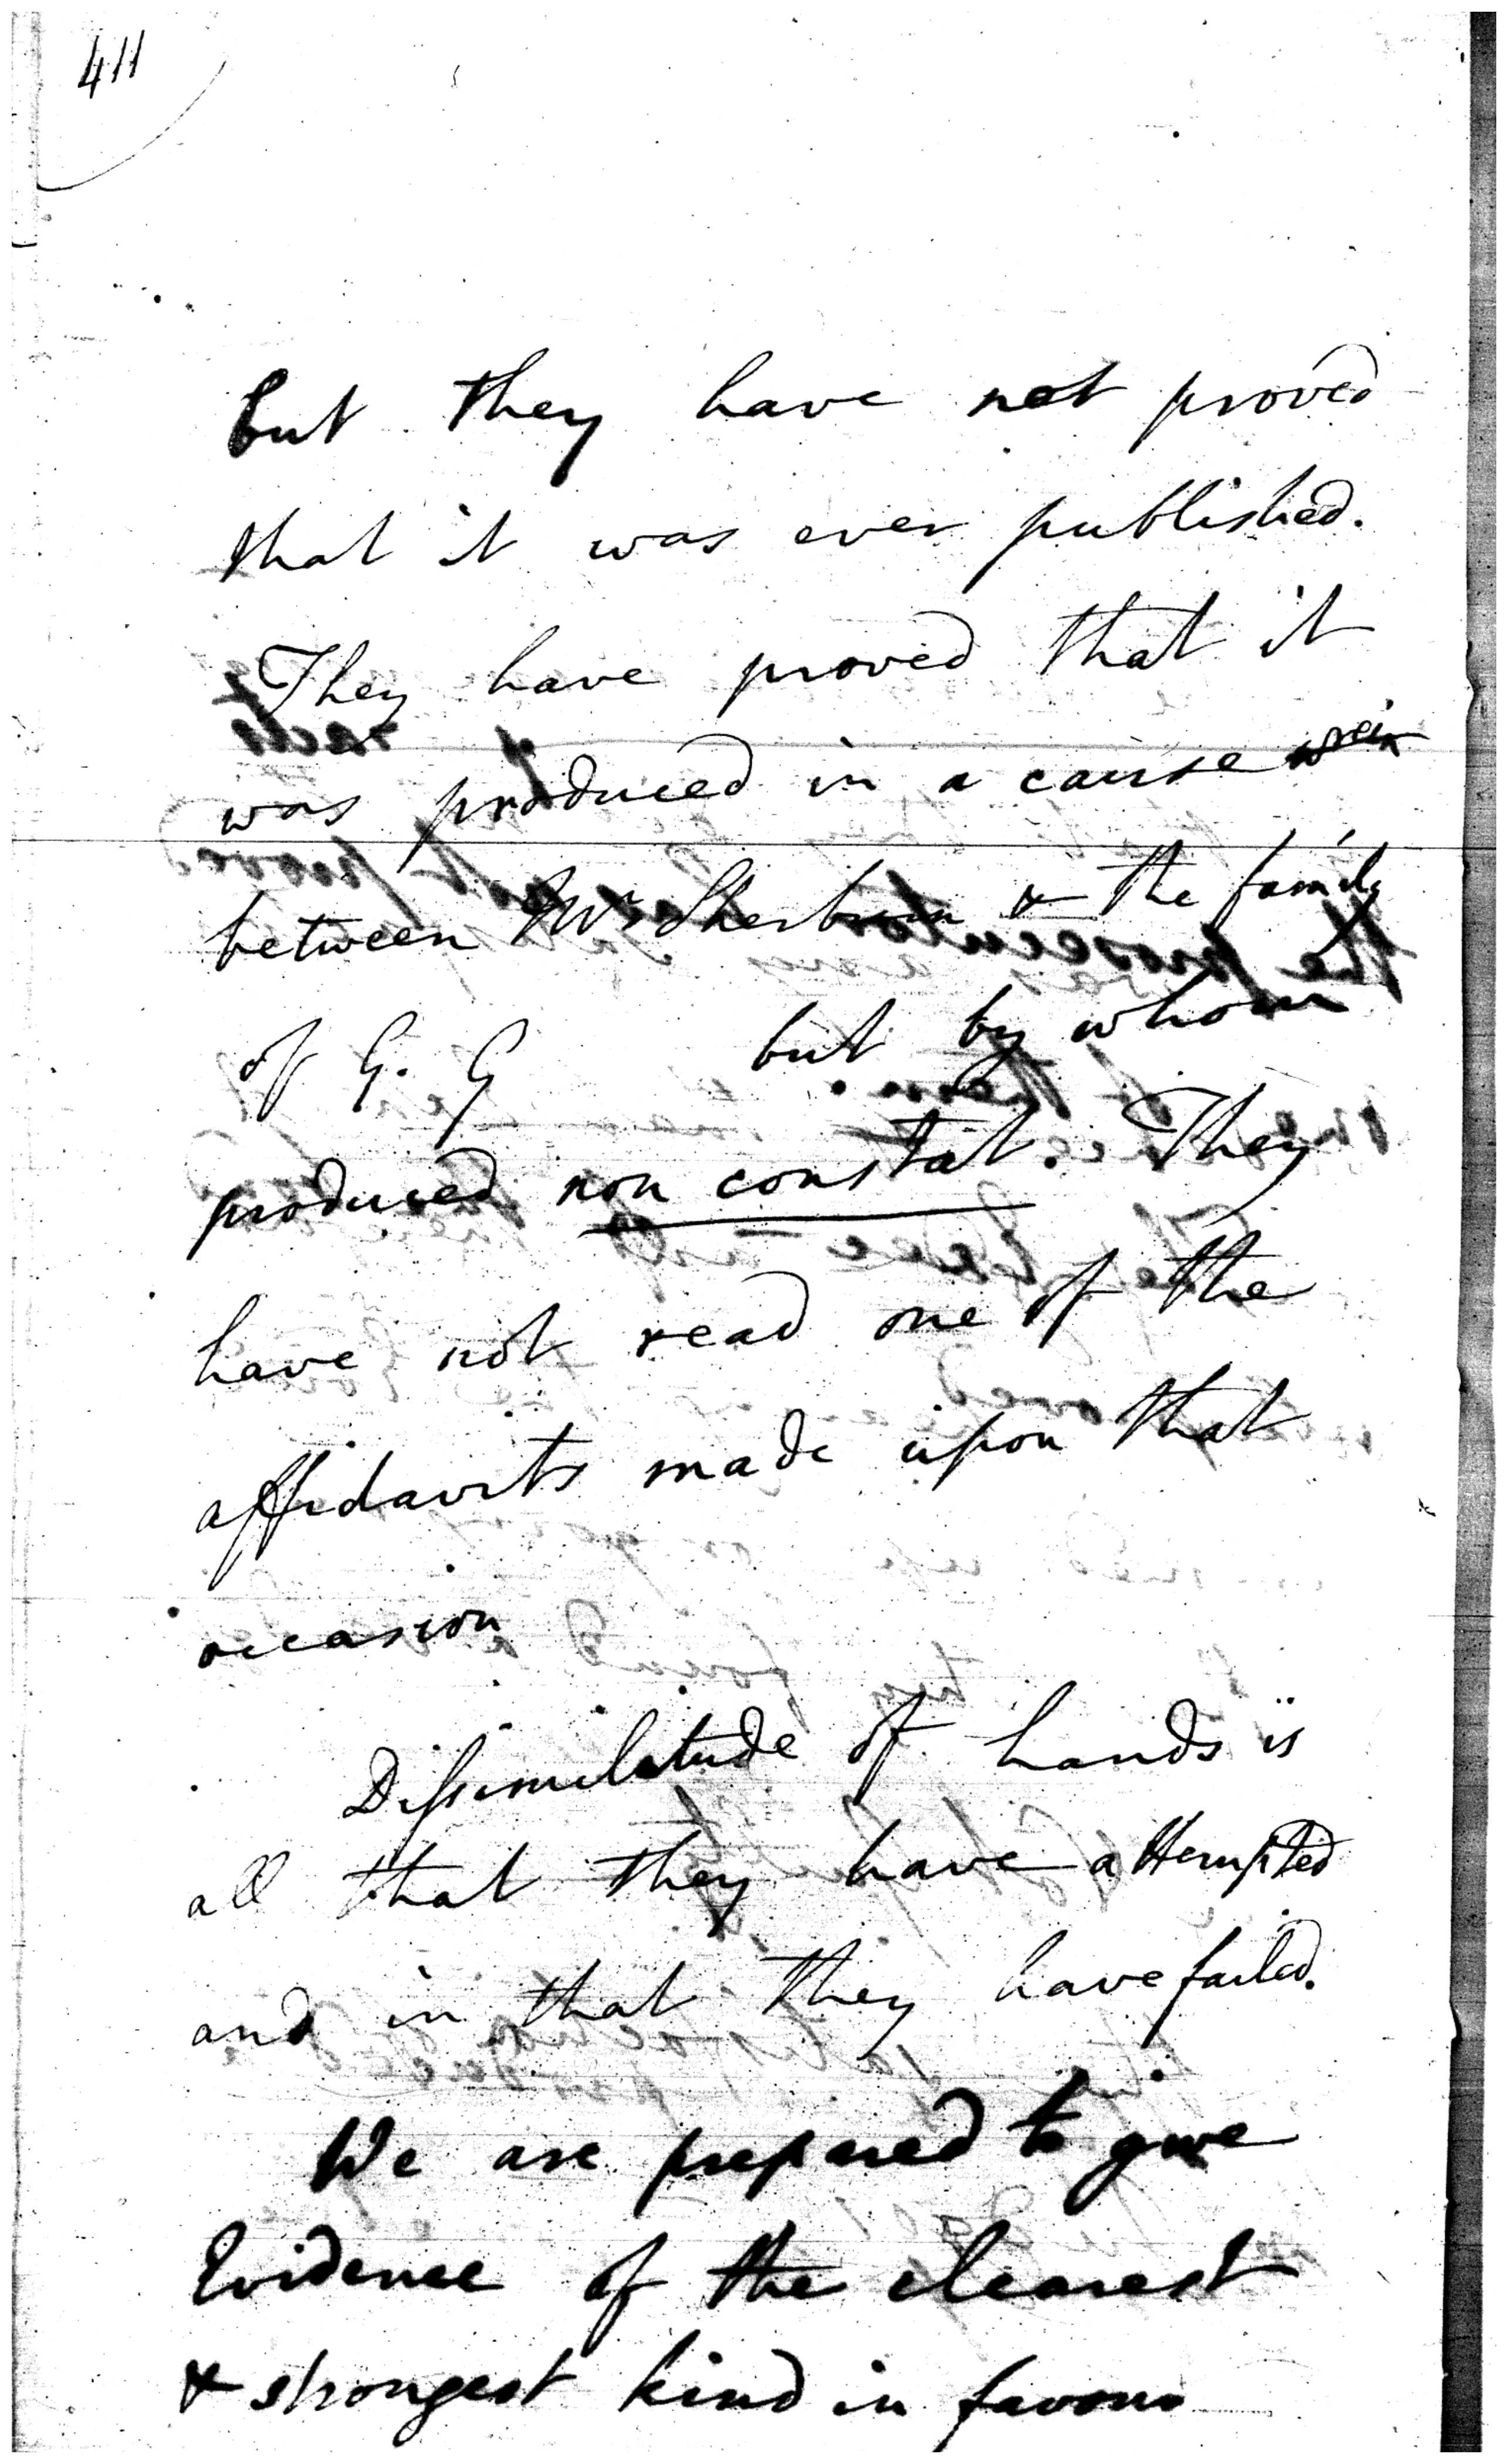 411
but they have not proved
that it was ever published.
They have proved that it
was produced in a cause
between Mr Sherbrun & the family
of G. G but by whom
produced non constat. They
have not read one of the
affidavits made upon that
occasion
Dissimilitude of hands is
all that they have attempted
and in that they have failed.
We are prepared to give
Evidence of the clearest
& strongest kind in favour